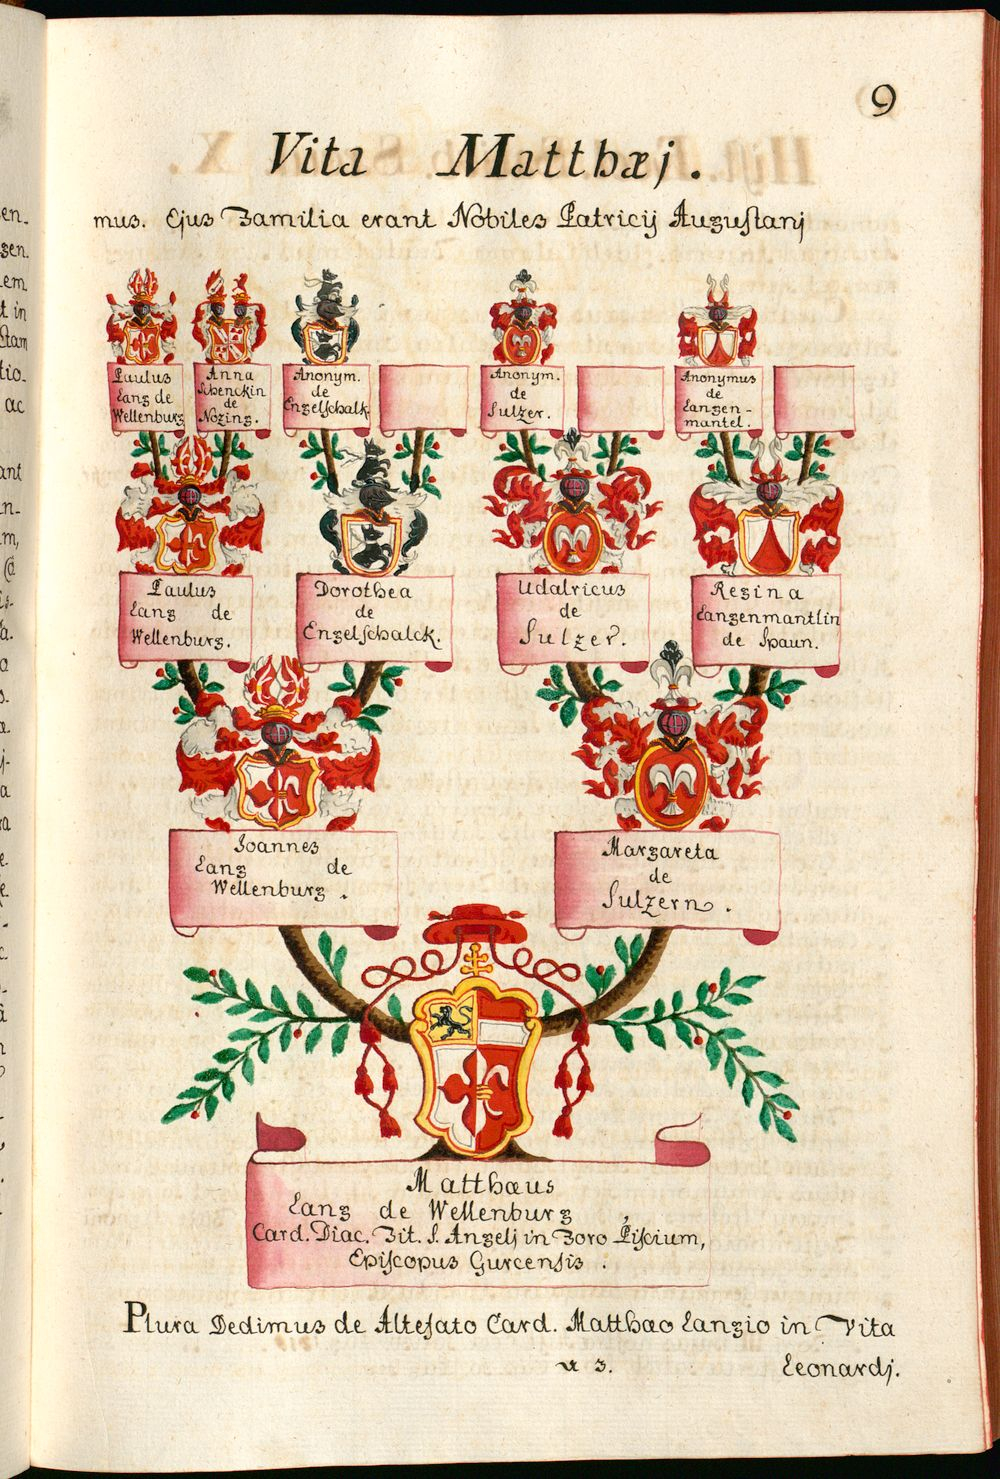 9
Vita Matthæj.
mus. Ejus Familia erant Nobiles Patricij Augustanj
Paulus
Lang de
Wellenburg
Anna
Schenckin
de
Nozing.
Anonym.
de
Engelschalk
Anonym.
de
Sulzer.
Anonymus
de
Langen-
mantel.
Paulus
Lang de
Wellenburg.
Dorothea
de
Engelschalck.
Udalricus
de
Sulzer.
Regina
Langenmantlin
de Spaun.
Joannes
Lang de
Wellenburg.
Margareta
de
Sulzern.
Matthæus
Lang de Wellenburg,
Card. Diac. Tit. S. Angelj in Foro Piscium,
Episcopus Gurcensis.
Plura Dedimus de Altefato Card. Matthæo Langio in Vita
Leonardj.